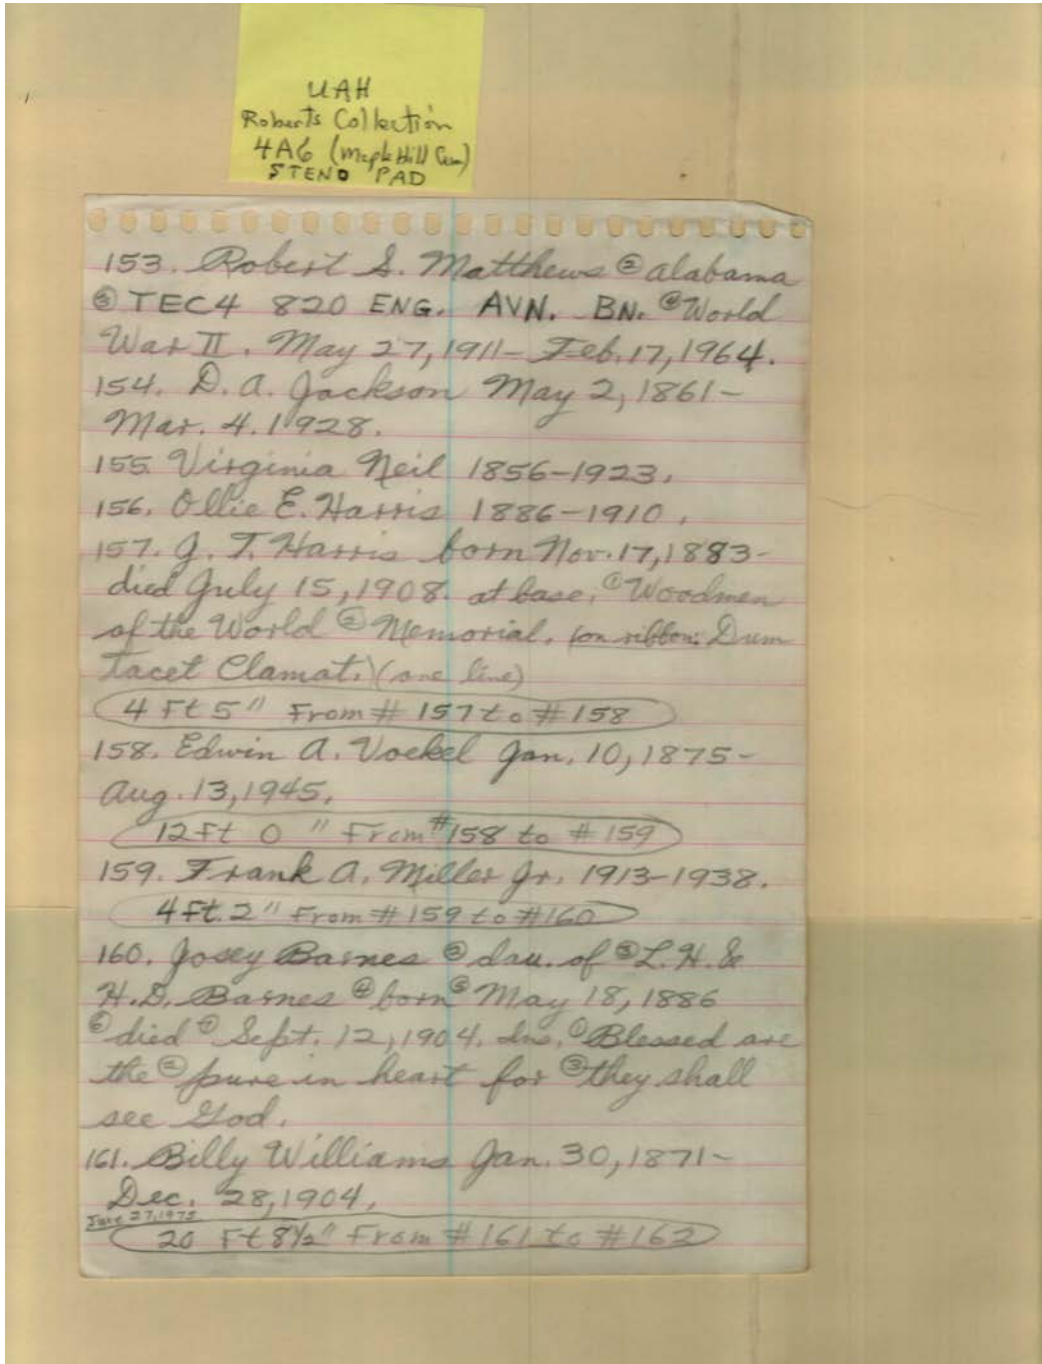 UAH
Roberts Collection
4A6 (Maple Hill Cem)
STENO PAD
153. Robert S. Matthews ② Alabama
③ TEC4 820 ENG. AVN. BN. ④ World
War II. May 27, 1911 – Feb. 17, 1964.
154. D. A. Jackson May 2, 1861 –
Mar. 4. 1928.
155. Virginia Neil 1856–1923.
156. Ollie E. Harris 1886–1910.
157. J. T. Harris born Nov. 17, 1883 –
died July 15, 1908. at base: ① Woodmen
of the World ② Memorial. (on ribbon: Dum
Tacet Clamat.) (one line)
4 Ft 5" From # 157 to # 158
158. Edwin A. Voekel Jan. 10, 1875 –
Aug. 13, 1945.
12 Ft 0" From # 158 to # 159
159. Frank A. Miller Jr. 1913–1938.
4 Ft. 2" From # 159 to # 160
160. Josey Barnes ② dau. of ③ L. H. &
H. D. Barnes ④ born ⑤ May 18, 1886
⑥ died ⑦ Sept. 12, 1904. Ins. ① Blessed are
the ② pure in heart for ③ they shall
see God.
161. Billy Williams Jan. 30, 1871 –
Dec. 28, 1904.
June 27, 1975
20 Ft 8½" From # 161 to # 162